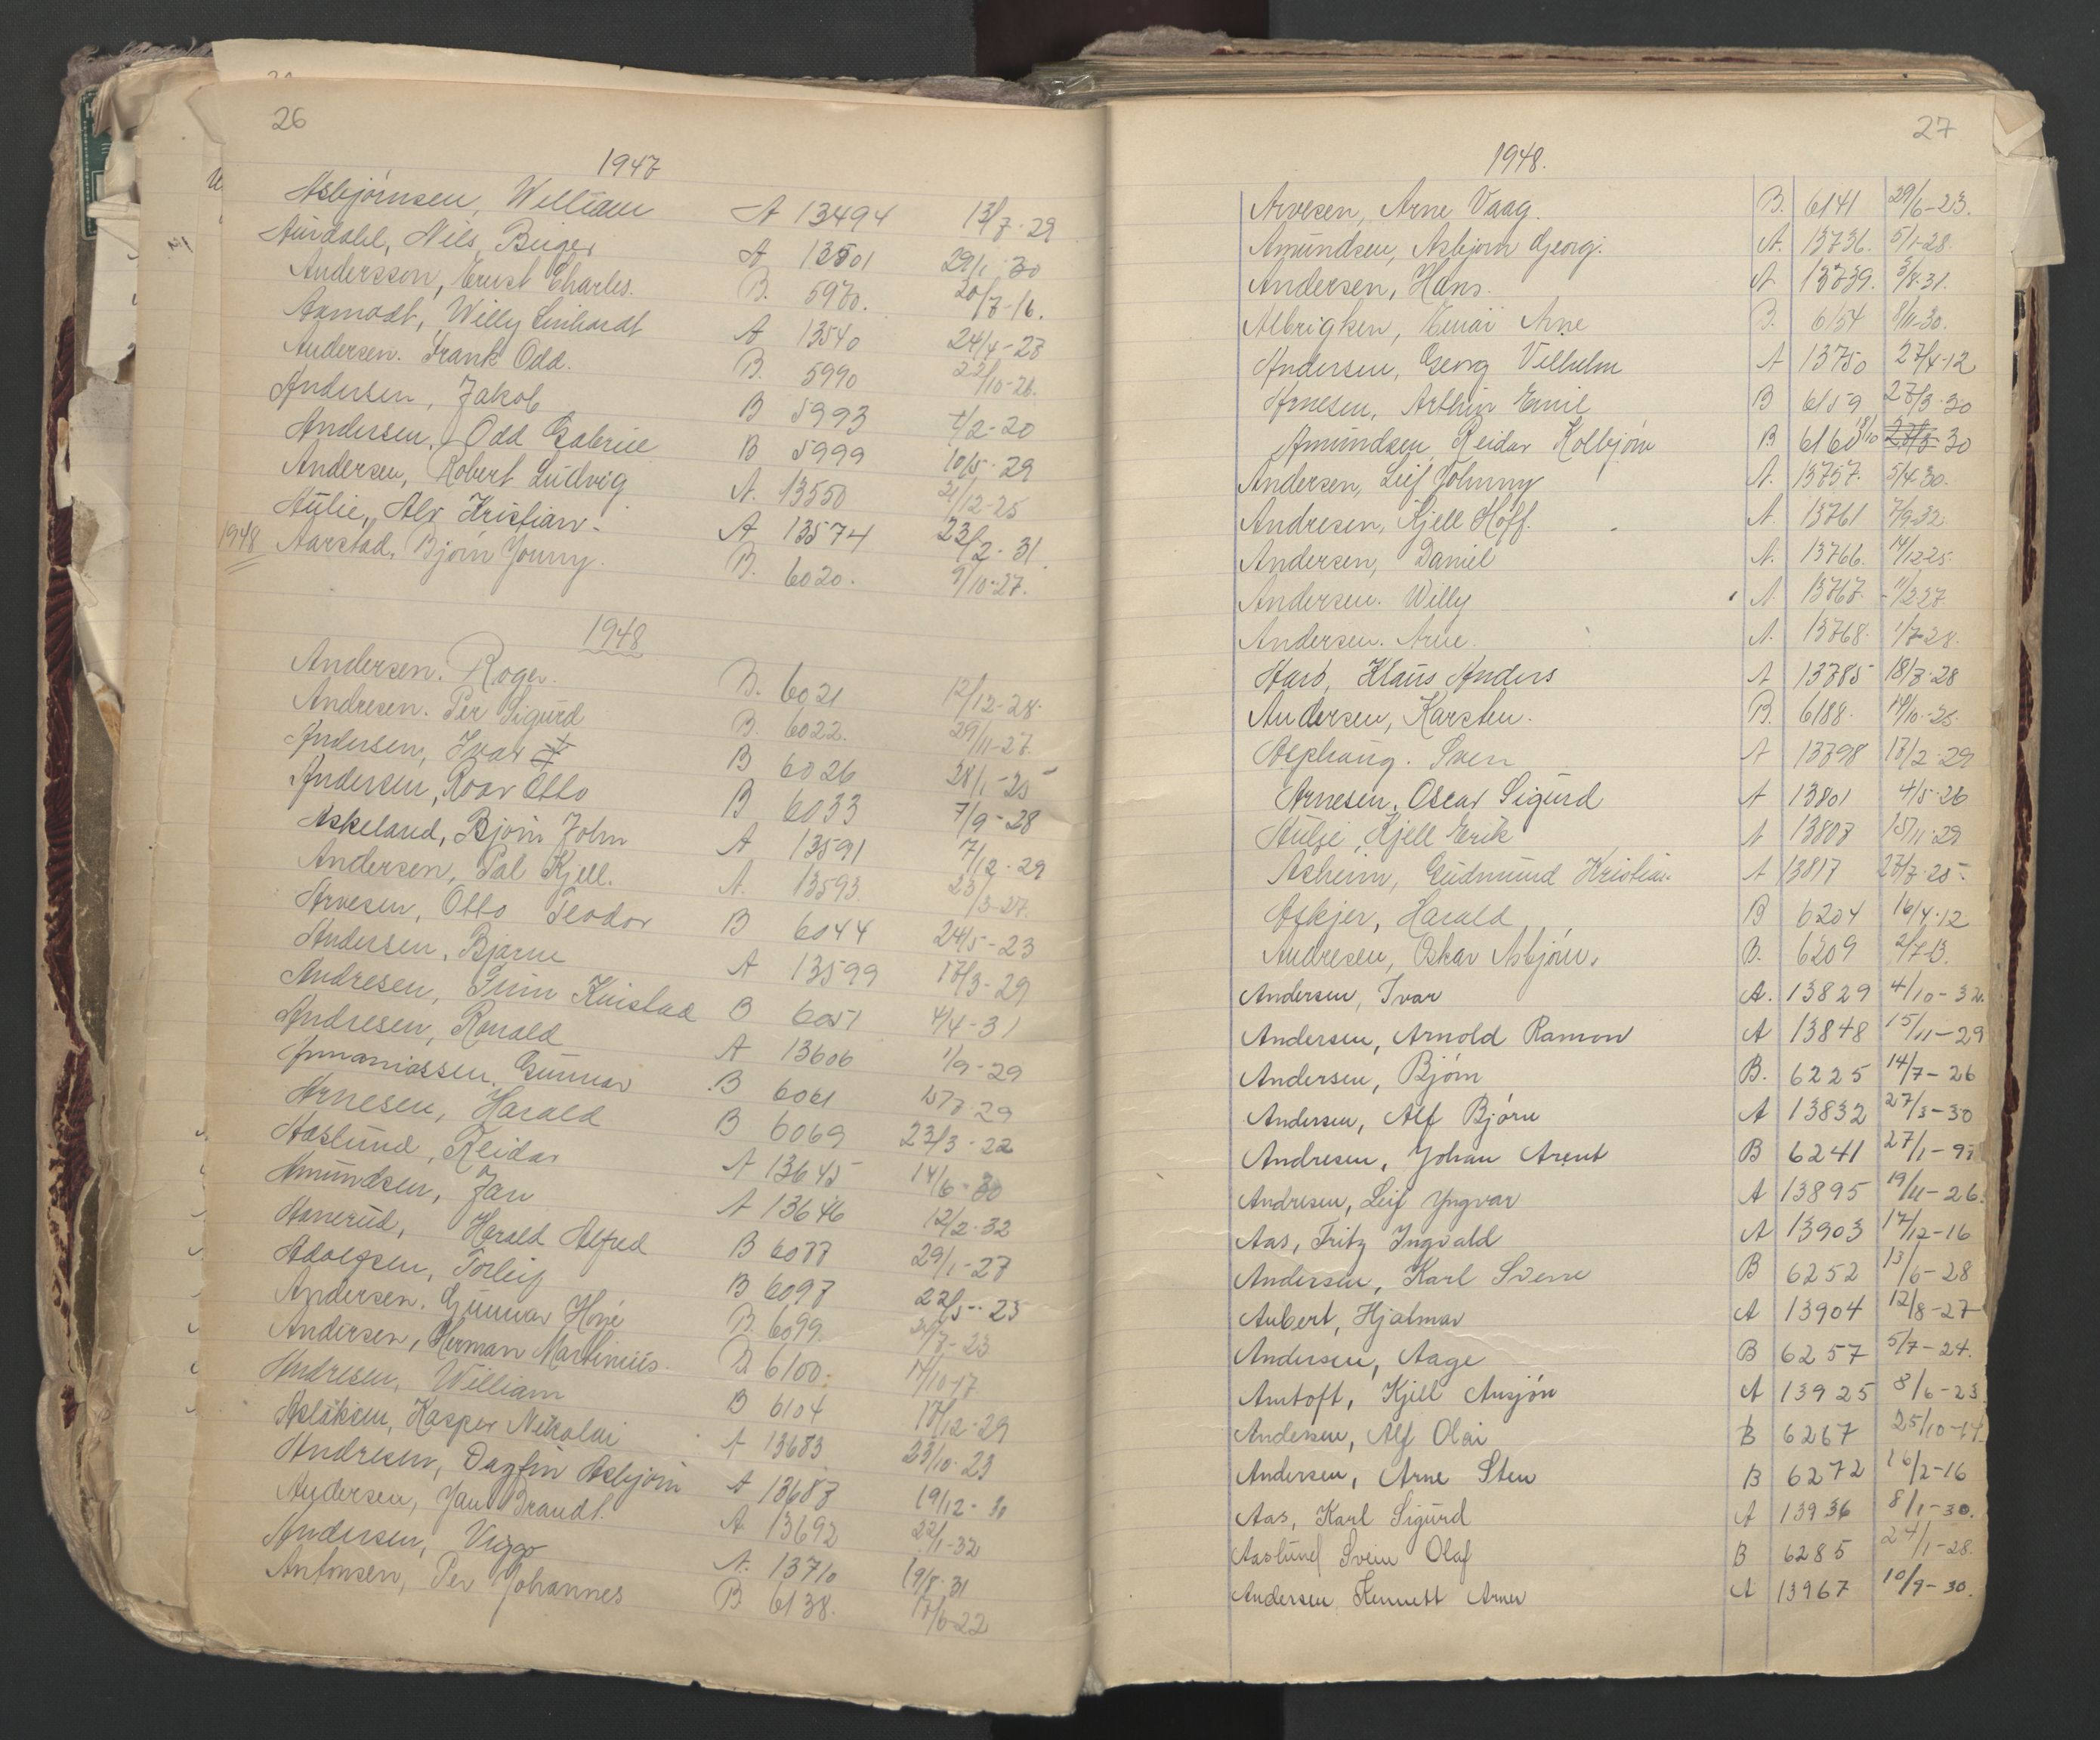 26
1947
Asbjørnsen, William A 13494 13/7-29
Aurdahl, Nils Birger A 13501 29/1-30
Andersson, Ernst Charles. B. 5970. 20/7-16.
Aamodt, Willy Linhardt A 13540 24/4-23
Andersen. Frank Odd. B. 5990 22/10-26.
Andersen, Jakob B 5993 1/2-20
Andersen, Odd Gabriel B 5999 10/5-29
Andersen, Robert Ludvig A. 13550 21/12-25
Aulie, Alv Kristian A 13574 23/2-31
1948 Aarstad, Bjørn Jonny. B. 6020. 9/10-27.
1948
Andersen. Roger. B. 6021 12/12-28.
Andresen. Per Sigurd B. 6022. 29/11-27.
Andersen, Ivar B 6026 28/1-25
Andersen, Roar Otto B 6033 7/9-28
Askeland, Bjørn John A 13591 7/12-29
Andersen, Pål Kjell. A. 13593. 23/3-27.
Arnesen, Otto Teodor B 6044 24/5-23
Andersen, Bjarne A 13599 17/3-29
Andresen, Finn B 6051 4/4-31
Andresen, Ronald A 13606 1/9-29
Gunnar B 6061 15/7-29
Arnesen, Harald B 6069 23/3-22
Aaslund, Reidar A 13645 14/6-30
Amundsen, Jan A 13646 12/2-32
Aanerud, Harald Alfred B 6077 29/1-27
Adolfsen, Torleif B 6097 22/5-23
Andersen, Gunnar Høye B. 6099 -23
Andersen, Herman Martinius B 6100. 14/10-17
Andresen, William B 6104 17/12-29
Aslaksen, Kasper Nikolai A 13683 23/10-23
Andresen, Dagfin Asbjørn A 13687 19/12-30
Andersen, Jan Brandt. A 13692 22/1-32
Andersen, Viggo A. 13710 19/8-31
Antonsen, Per Johannes B 6138. 17/6-22
27
1948.
Arvesen, Arne Vaag. B. 6141 29/6-23.
Amundsen, Asbjørn Georg. A. 13736. 5/1-28.
Andersen, Hans. A 13739. 3/8-31.
Albrigtsen, Arne B. 6154 8/11-30.
Andersen, Georg Vilhelm A 13750 27/4-12
Arnesen, Arthur Emil B 6159 27/3-30
Amundsen, Reidar Kolbjørn B 6160 18/10 27/3-30
Andersen, Leif Johnny A. 13757. 5/4-30.
Andresen, Kjell Hoff. A. 13761 7/9-32.
Andersen, Daniel A. 13766. 14/12-25.
Andersen. Willy A 13767. 11/2-27
Andersen. Arne. A. 13768. 1/7-28.
Aarø, Klaus Anders A 13785 18/3-28
Andersen, Karsten. B. 6188. 14/10-28.
Asphaug. Sven A 13798 17/2-29
Arnesen, Oscar Sigurd A 13801 4/5-26
Aulie, Kjell Erik A 13807 15/11-29
Asheim, Gudmund Kristian A 13817 27/7-25.
Askjer, Harald B 6204 16/4-12
Andresen, Oskar Asbjørn. B. 6209 2/7-13.
Andersen, Ivar A. 13829 4/10-32.
Andersen, Arnold Ramon A 13848 15/11-29
Andersen, Bjørn B. 6225 14/7-26
Andersen, Alf Bjørn A 13832 27/3-30
Andresen, Johan Arent B 6241 27/1-97
Andresen, Leif Yngvar A 13895 19/11-26.
Aas, Fritz Ingvald A 13903 17/12-16
Andersen, Karl Sverre B 6252 13/6-28
Aubert, Hjalmar A 13904 12/8-27
Andersen, Aage B 6257 5/7-24.
Amtoft, Kjell Ansjøn A 13925 8/6-23
Andersen, Alf Olai B 6267 25/10-14.
Andersen, Arne Sten B 6272 16/2-16
Aas, Karl Sigurd A 13936 8/1-30.
Aaslund Svein Olaf B 6285 24/1-28.
Andersen Kennett Arner A 13967 10/9-30.